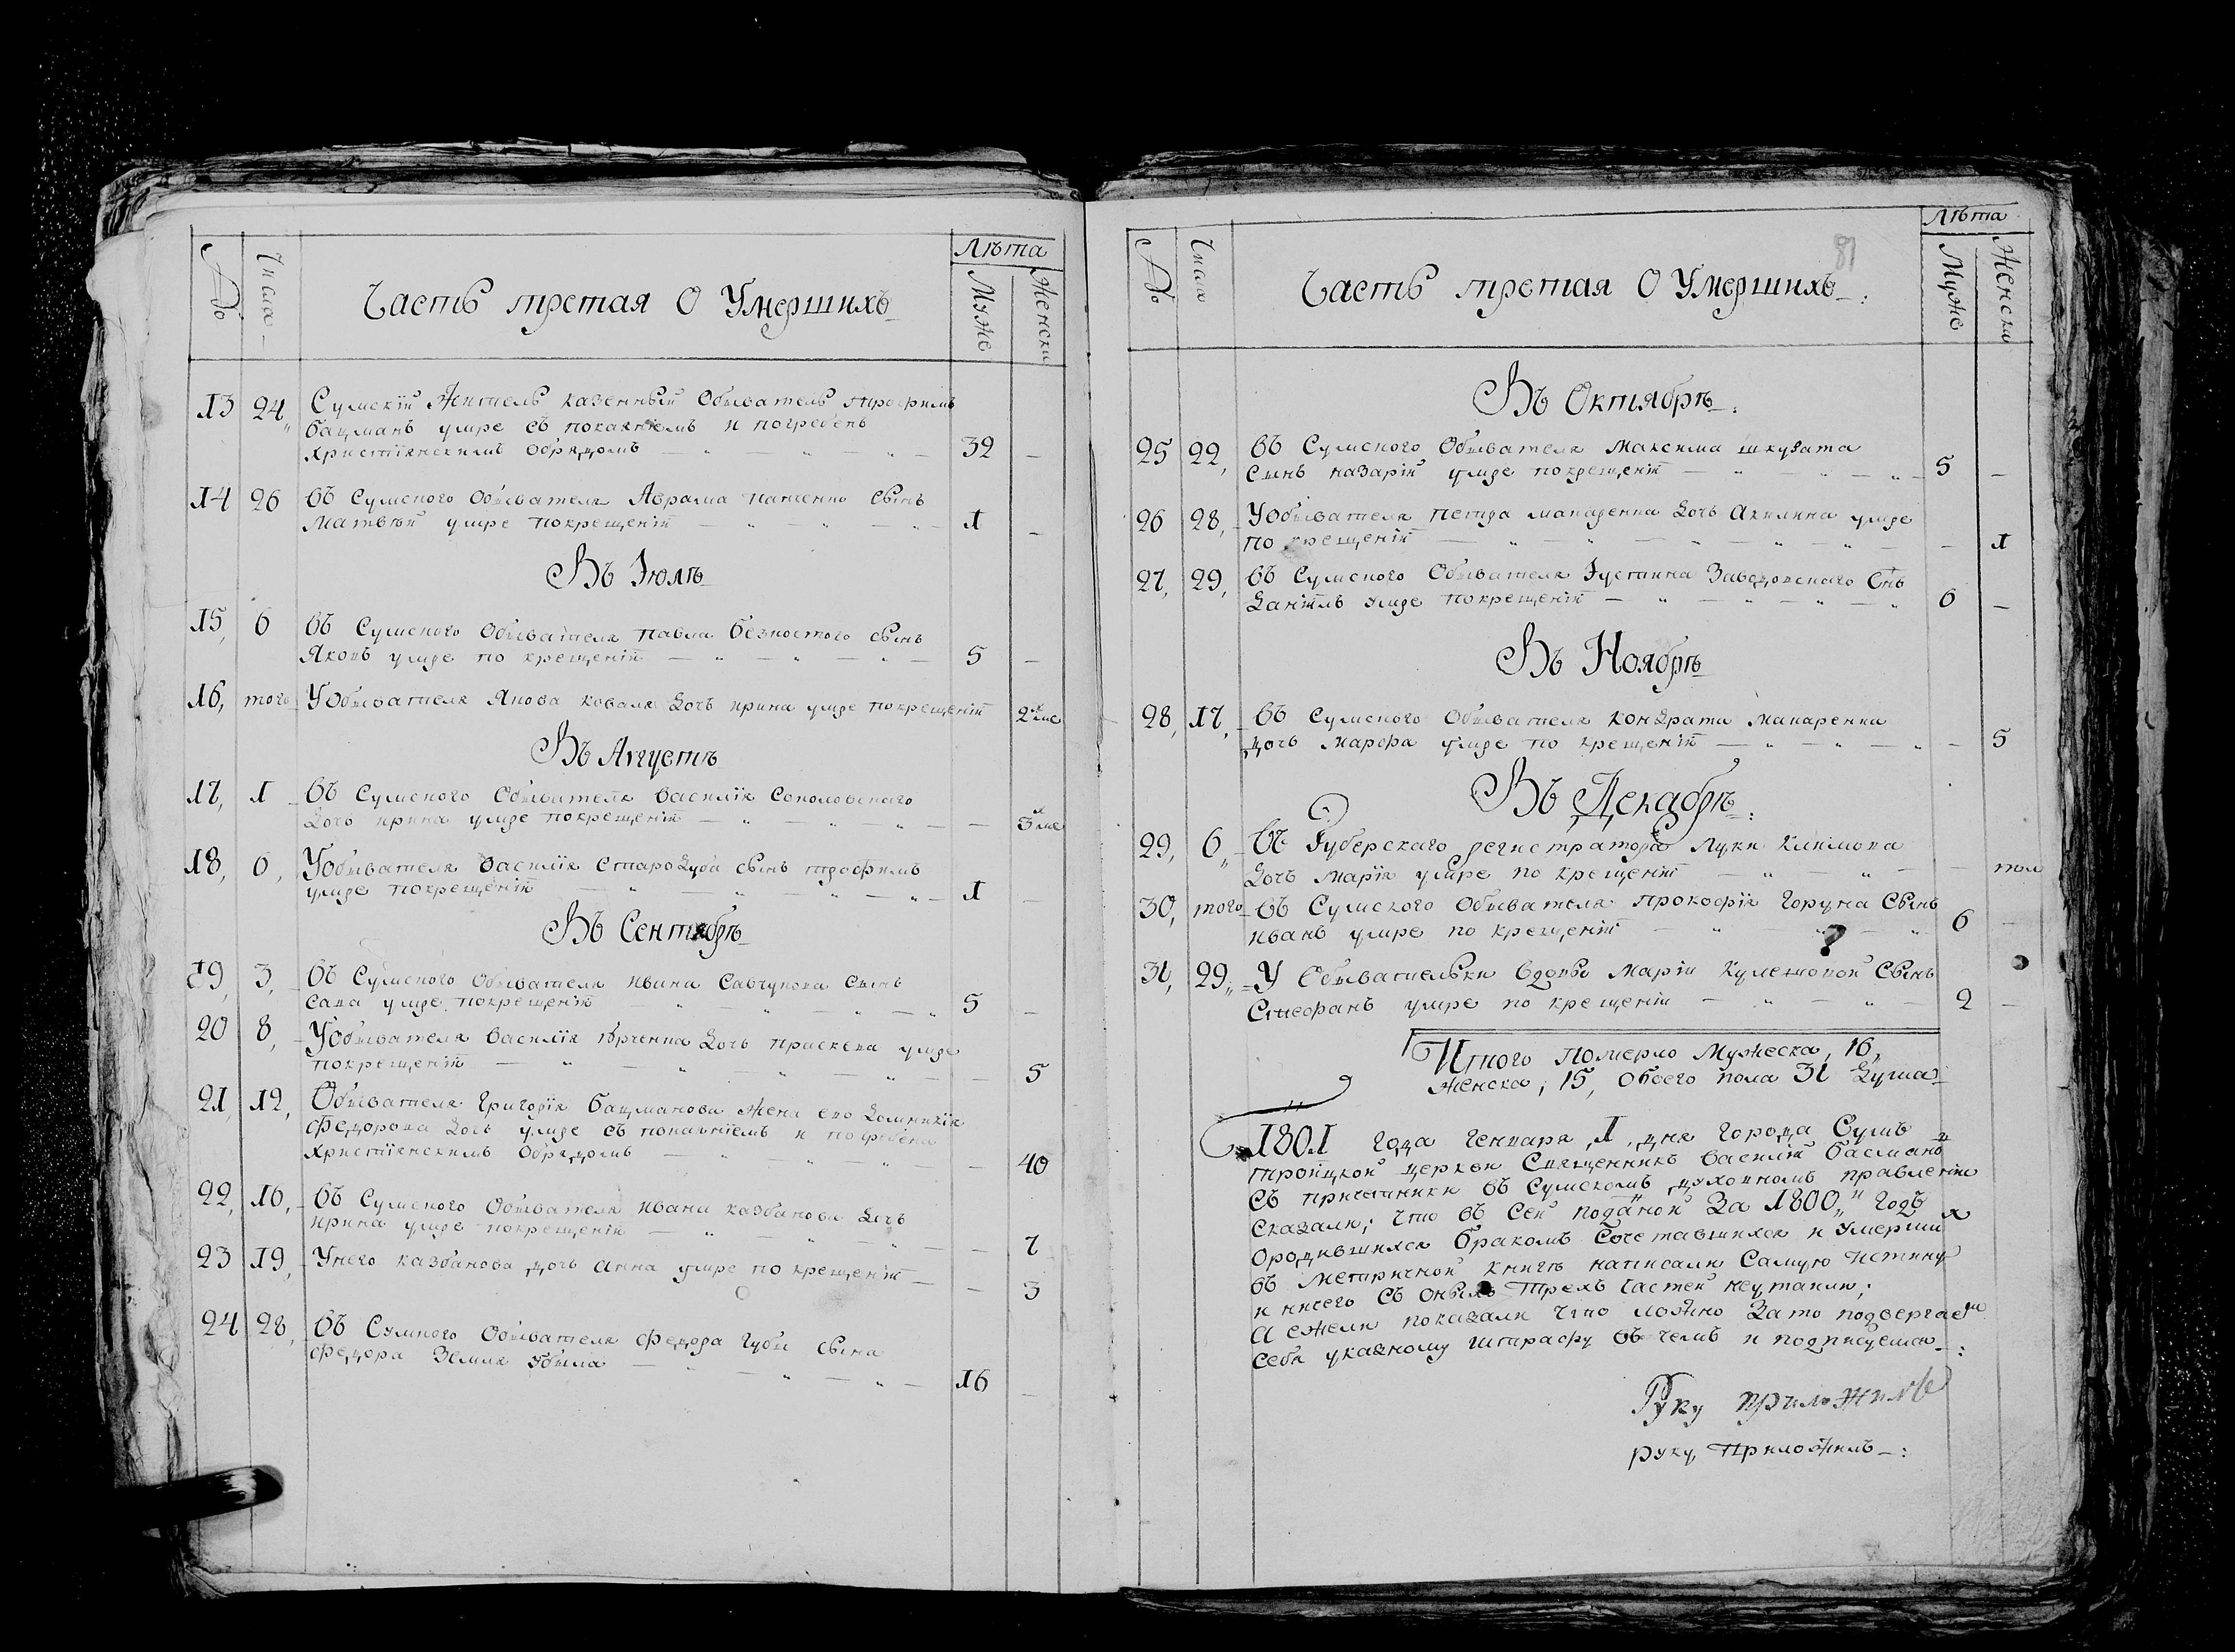 №
Числа
Часть третая О Умершихъ
Лѣта
Муже
Женски
13 24 Сумскїй Житель казенный Обыватель трофимъ
бацманъ умре съ покаянїемъ и погребенъ
христїянскимъ Обрядомъ 32
14 26 въ Сумского Обывателя Аврама панченко сынъ
Матвѣй умре покрещенїи 1
Въ Іюлѣ
15, 6 въ Сумского Обывателя павла безкостого сынъ
Яковъ умре по крещенїи 5
16, того Уобывателя Якова коваля дочь ирина умре покрещенїи 2 х ме
Въ Августѣ
17, 1 въ Сумского Обывателя василїя Соколовского
дочь ирина умре покрещенїи 3 х ме
18, 6, Уобывателя василїя Стародуба сынъ трофимъ
умре покрещенїи 1
Въ Сентябрѣ
19, 3, въ Сумского Обывателя ивана Савчукова сынъ
Сава умре покрещенїи 5
20 8, Уобывателя василїя дочь прискева умре
покрещенїи 5
21, 12, Обывателя григорїя бацманова жена его домникїя
федорова дочь умре съ покаянїемъ и погребена
христїянскимъ Обрядомъ 40
22, 16, въ Сумского Обывателя ивана казбанова дочь
ирина умре покрещенїи 7
23 19, Унего казбанова дочь анна умре по крещенїи 3
24 28, въ Сумкого Обывателя федора губы сына
федора Земля убила 16
№
Числа
Часть третая О Умершихъ
81
Лѣта
Муже
Женски
Въ Октябрѣ
25 22, въ Сумского Обывателя максима шкурата
сынъ назарїй умре покрещенїи 5
26 28, Уобывателя петра макаренка дочь Акилина умре
по крещенїи 1
27, 29, въ Сумского Обывателя Іустина Заводовского Снъ
данїилъ умре покрещенїи 6
Въ Ноябрѣ
28, 17, въ Сумского Обывателя кондрата макаренка
дочь марфа умре по крещенїи 5
Въ Декабрѣ
29, 6, въ Губерскаго регистратора Луки климова
дочь марїя умре по крещенїи
30, того въ Сумского Обывателя прокофїя горуна Сынъ
иванъ умре по крещенїи 6
31, 29, У Обывательки вдовы Марїи кулешовой Сынъ
Стефанъ умре по крещенїи 2
Итого померло Мужеска, 16,
женска, 15, обоего пола 31 душа
1801 года генваря 1 дня города Сумъ
троицкой церкви Священникъ василїй басманъ
съ причетники въ Сумскомъ духовномъ правленїи
сказали; что въ сей поданой За 1800 годъ
ородившихся бракомъ Сочетавшихся и Умерших
въ метричной книгѣ написали Самую истину
и ничего съ оныхъ трехъ частей неутаили;
а ежели показали что ложно зато подвергаем
себя указному штрафу въ чемъ и подписуемся
Руку приложилъ
руку приложилъ